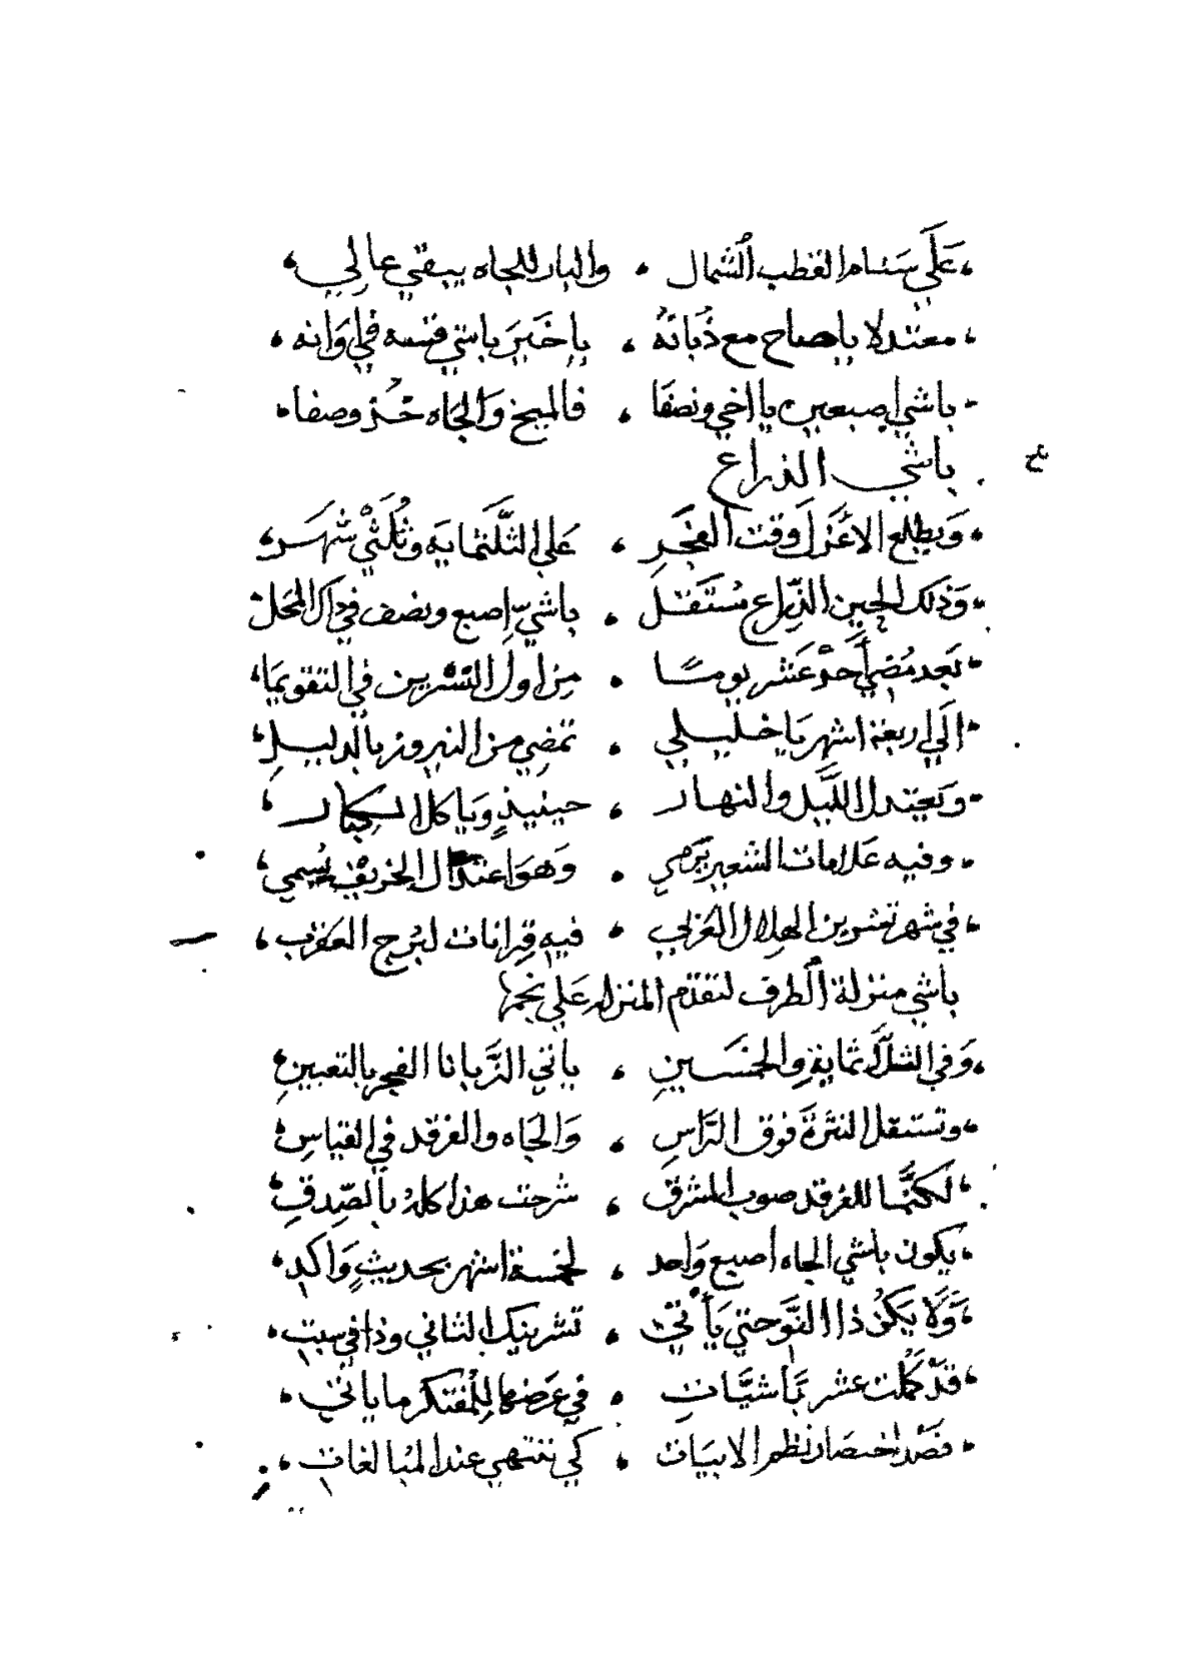 عَلَي سَنام القطب الشمال ، والبار للجاه يبقي عالي
معتدلا ياصاح مع ذُبانهُ ، ياخَيرَ باشي قسه في اوَانه
باشي اصبعين يا اخي ونصفَا ، فالميخ وَالجَاه خُذ وصفا
باشي الذراع
وَيطلع الاعْزَل وَقت الفَجَرِ ، عَلي الثَلَثمايَه وثُلثَيْ شهَر
وَذلك الحين الذِراع مُستَقل ، باشيّ اِصبع ونصف في ذاك المحَل
بَعد مُضي أَحدْ عَشر يومًا ، من اول التشرين في التقويمَا
الَي اربعة اشهر يَا خليلي ، تمضِي من النيروز بالدليلِ
ويَعتدل اللَّيل والنهار ، حينيذٍ وَيا كل الكبار
وفيه عَلامات الشعير تَرمي ، وَهوَ اعتدال الخريف يُسمي
في شهر تشرين الهِلال العَربي ، فيهِ قِرانات لبُرج العَقرب
باشي منزلة الطرف لتقدّم المنزله عَلي نجمها
وَفي الثلاثمايةِ والخمسَينِ ، ياتي الزَّبانا الفجر بالتعيينِ
وتستقل النثرَةَ فوق الرَّاسِ ، وَالجَاه والفرقد في القياسِ
لَكنَّها للفرقد صوب المشرقَ ، شرحت هذا كلهُ بالصِّدقِ
يكون باشي الجاه اصبع وَاحد ، لخمسة اشهر بحديثٍ وَاكدِ
وَلَا يَكُنْ ذا النَّو حتي يَأتي ، تشرينك الثاني وذا في سبتِ
قَدْ كُملت عشر بَاشيَّاتِ ، في عَرضها للمُفتكر ما ياتي
قصْد اختصار نظم الابيَات ، كي ننتهي عند المُبالغات